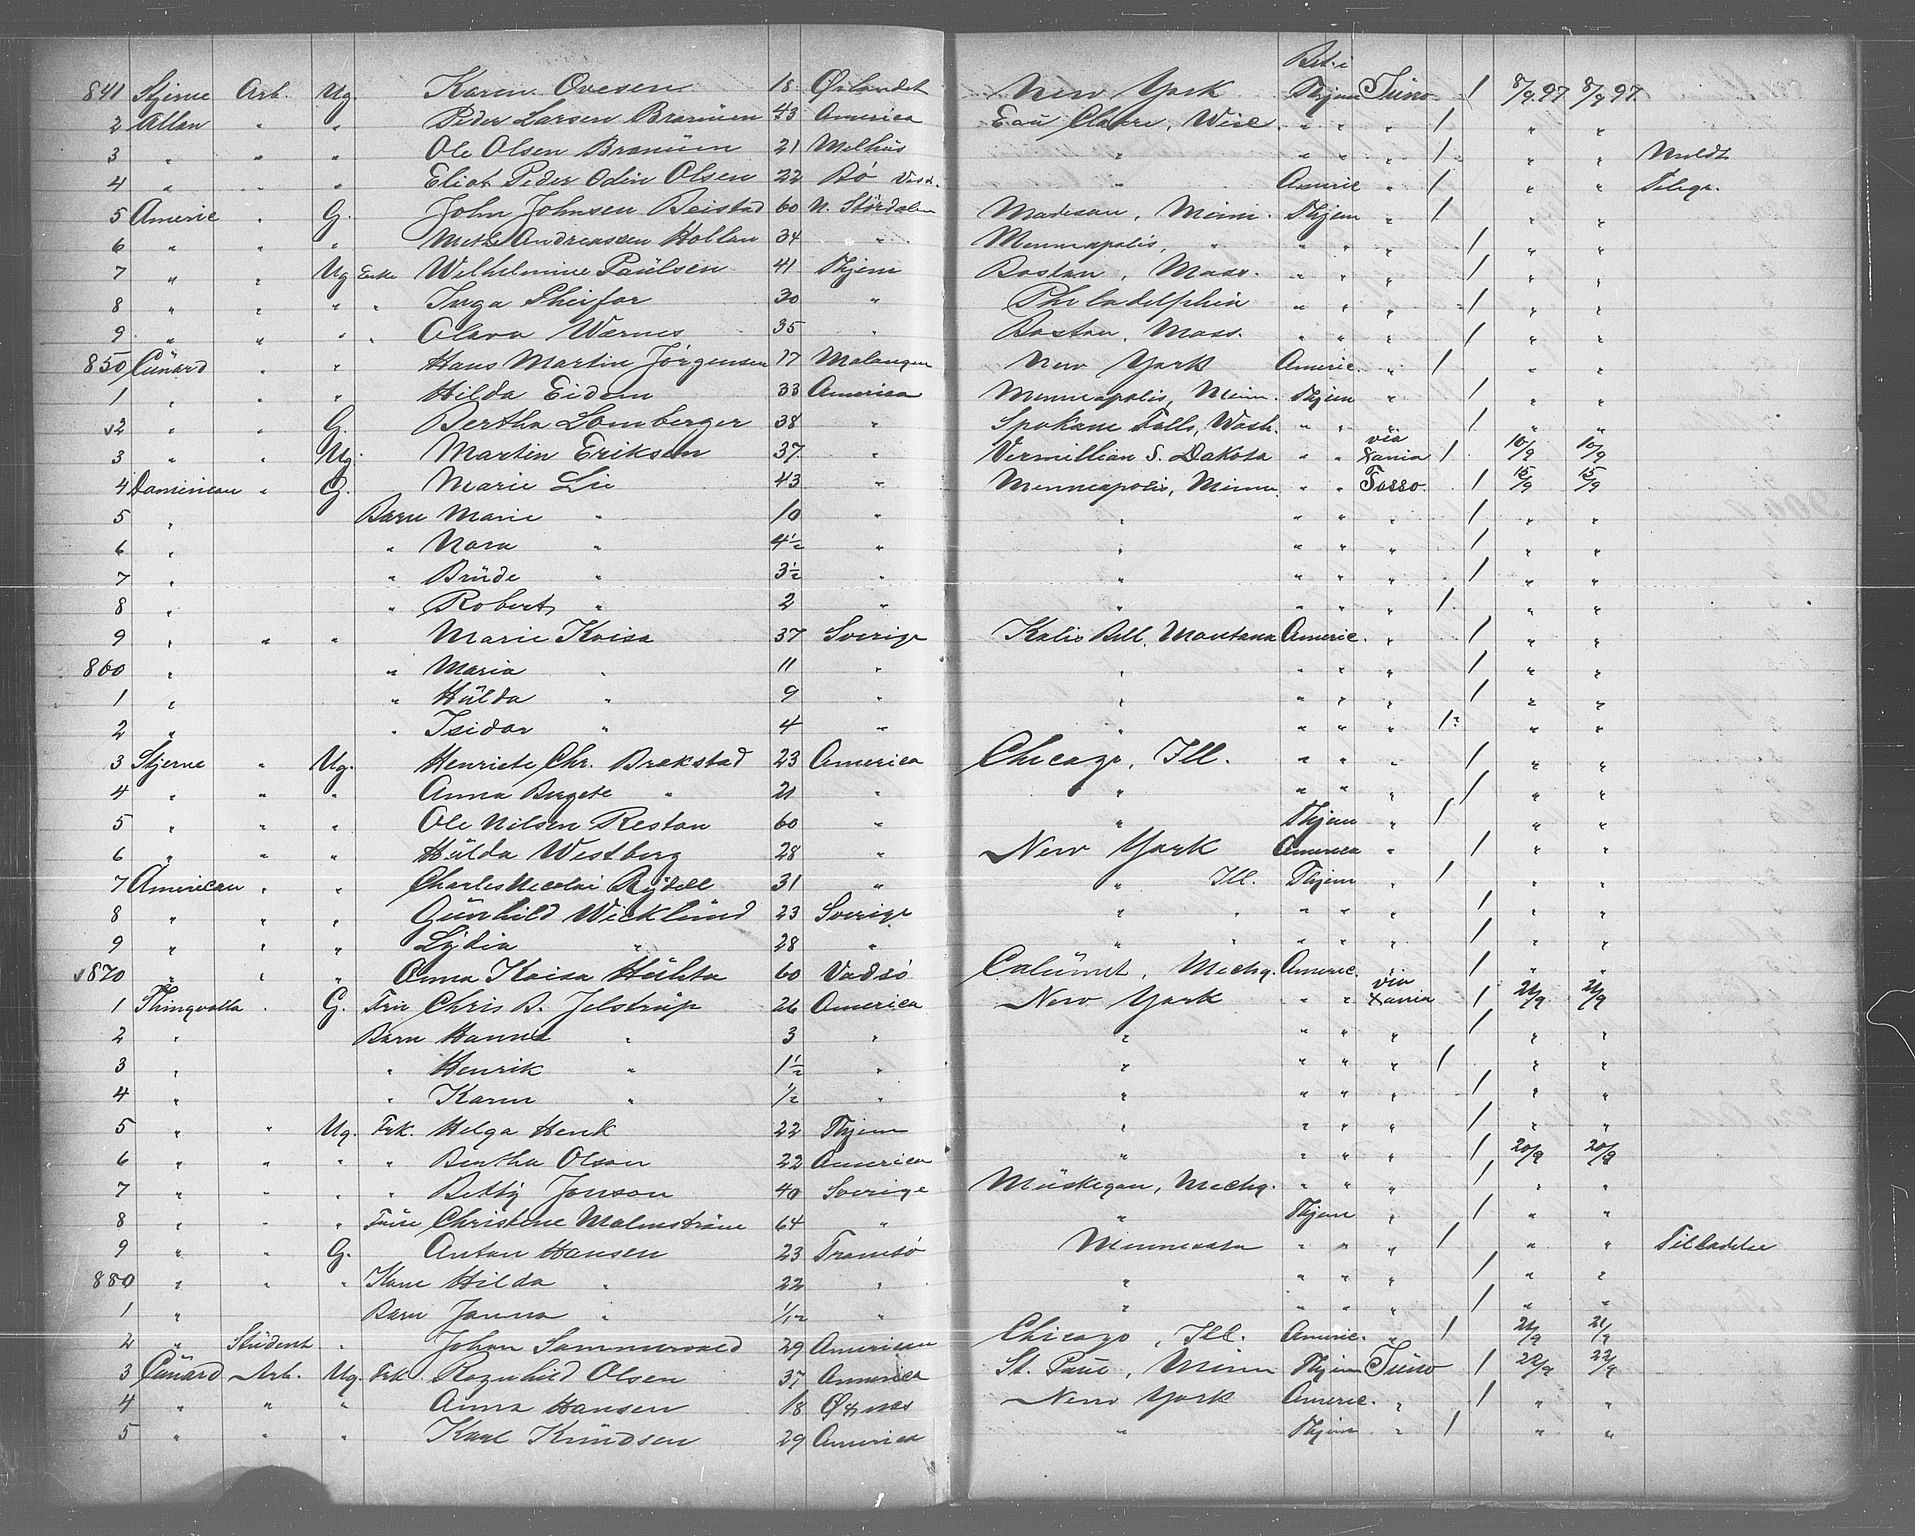 Bet. i
841 Stjerne Arb. Ug. Karen Ovesen 18 Ørlandet New York Thjem Juno 1 8/9 97 8/9 97
2 Allan " " Peder Larsen Branúm 43 America Eau Claire, Wisc. " " " 1 " "
3 " " " Ole Olsen Branúm 21 Melhús " " " " 1 " "
4 " " " Eliot Peder Odin Olsen 22 Bø " Americ " 1 " " Telegr.
5 Americ " G. John Johnsen Beistad 60 N. Stördalen Madison, Minn. Thjem " 1 " "
6 " " " Mette Andreassen Hollan 34 " Minneapolis, " " " " 1 " "
7 " " Ug Enke Wilhelmine Paülsen 41 Thjem Boston, Mass. " " " 1 " "
8 " " " " Inga 30 " Philadelphia " " " 1 " "
9 " " " " Olava Wærnes 35 " Boston, Mass. " " " 1 " "
850 Cúnard " " Hans Martin Jörgensen 17 Malangen New York Americ. " 1 " "
1 " " " Hilda Eidem 33 America Minneapolis, Minn. Thjem " 1 " "
2 " " G. Bertha Lomberger 38 " Spokane Falls, Wash. " " " 1 " "
3 " " Ug. Martin Eriksen 37 " Vermillian S. Dakota " " via Xania 1 10/9 10/9
4 Dominican " G. Marie Lie 43 " Minneapolis, Minn. " " Tasso 1 15/9 15/9
5 " Barn Marie " 10 " " " " " 1 " "
6 " " Nora " 4½ " " " " " 1 " "
7 " " Brüde " 3½ " " " " " 1 " "
8 " " Robert " 2 " " " " " 1 " "
9 " " " Marie Kvisa 37 Sverige Kalis Bell, Montana Americ. " 1 " "
860 " " Maria " 11 " " " " " 1 " "
1 " " Hülda " 9 " " " " " 1 " "
2 " " Isidor " 4 " " " " " 1 " "
3 Stjerne " Ug. Henriete Chr. Brekstad 23 America Chicago, Ill. " " " 1 " "
4 " " " Anna Birgete " 21 " " " " " 1 " "
5 " " " Ole Nilsen Restan 60 " " Thjem " 1 " "
6 " " " Hülda Westberg 28 " New York America " 1 " "
7 American " " Charles Nicolai Rydell 31 " " Ill. Thjem " 1 " "
8 " " " Gúnhild Wicklúnd 23 Sverige " " " " " 1 " "
9 " " " Lydia " 28 " " " " " " 1 " "
870 " " " Anna Kaisa Húhta 60 Vadsö Calúmet, Michg. Americ. " 1 " "
1 Thingvalla " G. Frú Chris B. Jelstrúp 26 America New York " " via Xania 1 21/9 21/9
2 " Barn Hanna " 3 " " " " " 1 " "
3 " " Henrik " 1½ " " " " " 1 " "
4 " " Karen " ½ " " " " " 1 " "
5 " " Ug. Frk. Helga Henk 22 Thjem " " " " 1 " "
6 " " " " Bertha Olson 22 America " " " " 1 20/9 20/9
7 " " " " Betty Jonson 40 Sverige Múskegan, Michg. " " " 1 " "
8 " " " Frúe Christine Malmström 64 " " Thjem " 1 " "
9 " " G. Anton Hansen 23 Tromsö Minnesota " " " 1 " "
880 " " " Kone Hilda " 22 " " " " " 1 " "
1 " Barn Janna " 1/12 " " " " " 1 " "
2 " Stúdent " Johan Sommervold 29 American Chicago, Ill. Americ. " 1 21/9 21/9
3 Cúnard Arb. Ug. Frk. Ragnhild Olsen 37 America St. Paúl, Minn Thjem Júno 1 22/9 22/9
4 " " " Anna Hansen 18 Øxnes New York Americ. " 1 " "
5 " " " Karl Knúdsen 29 America " Thjem " 1 " "